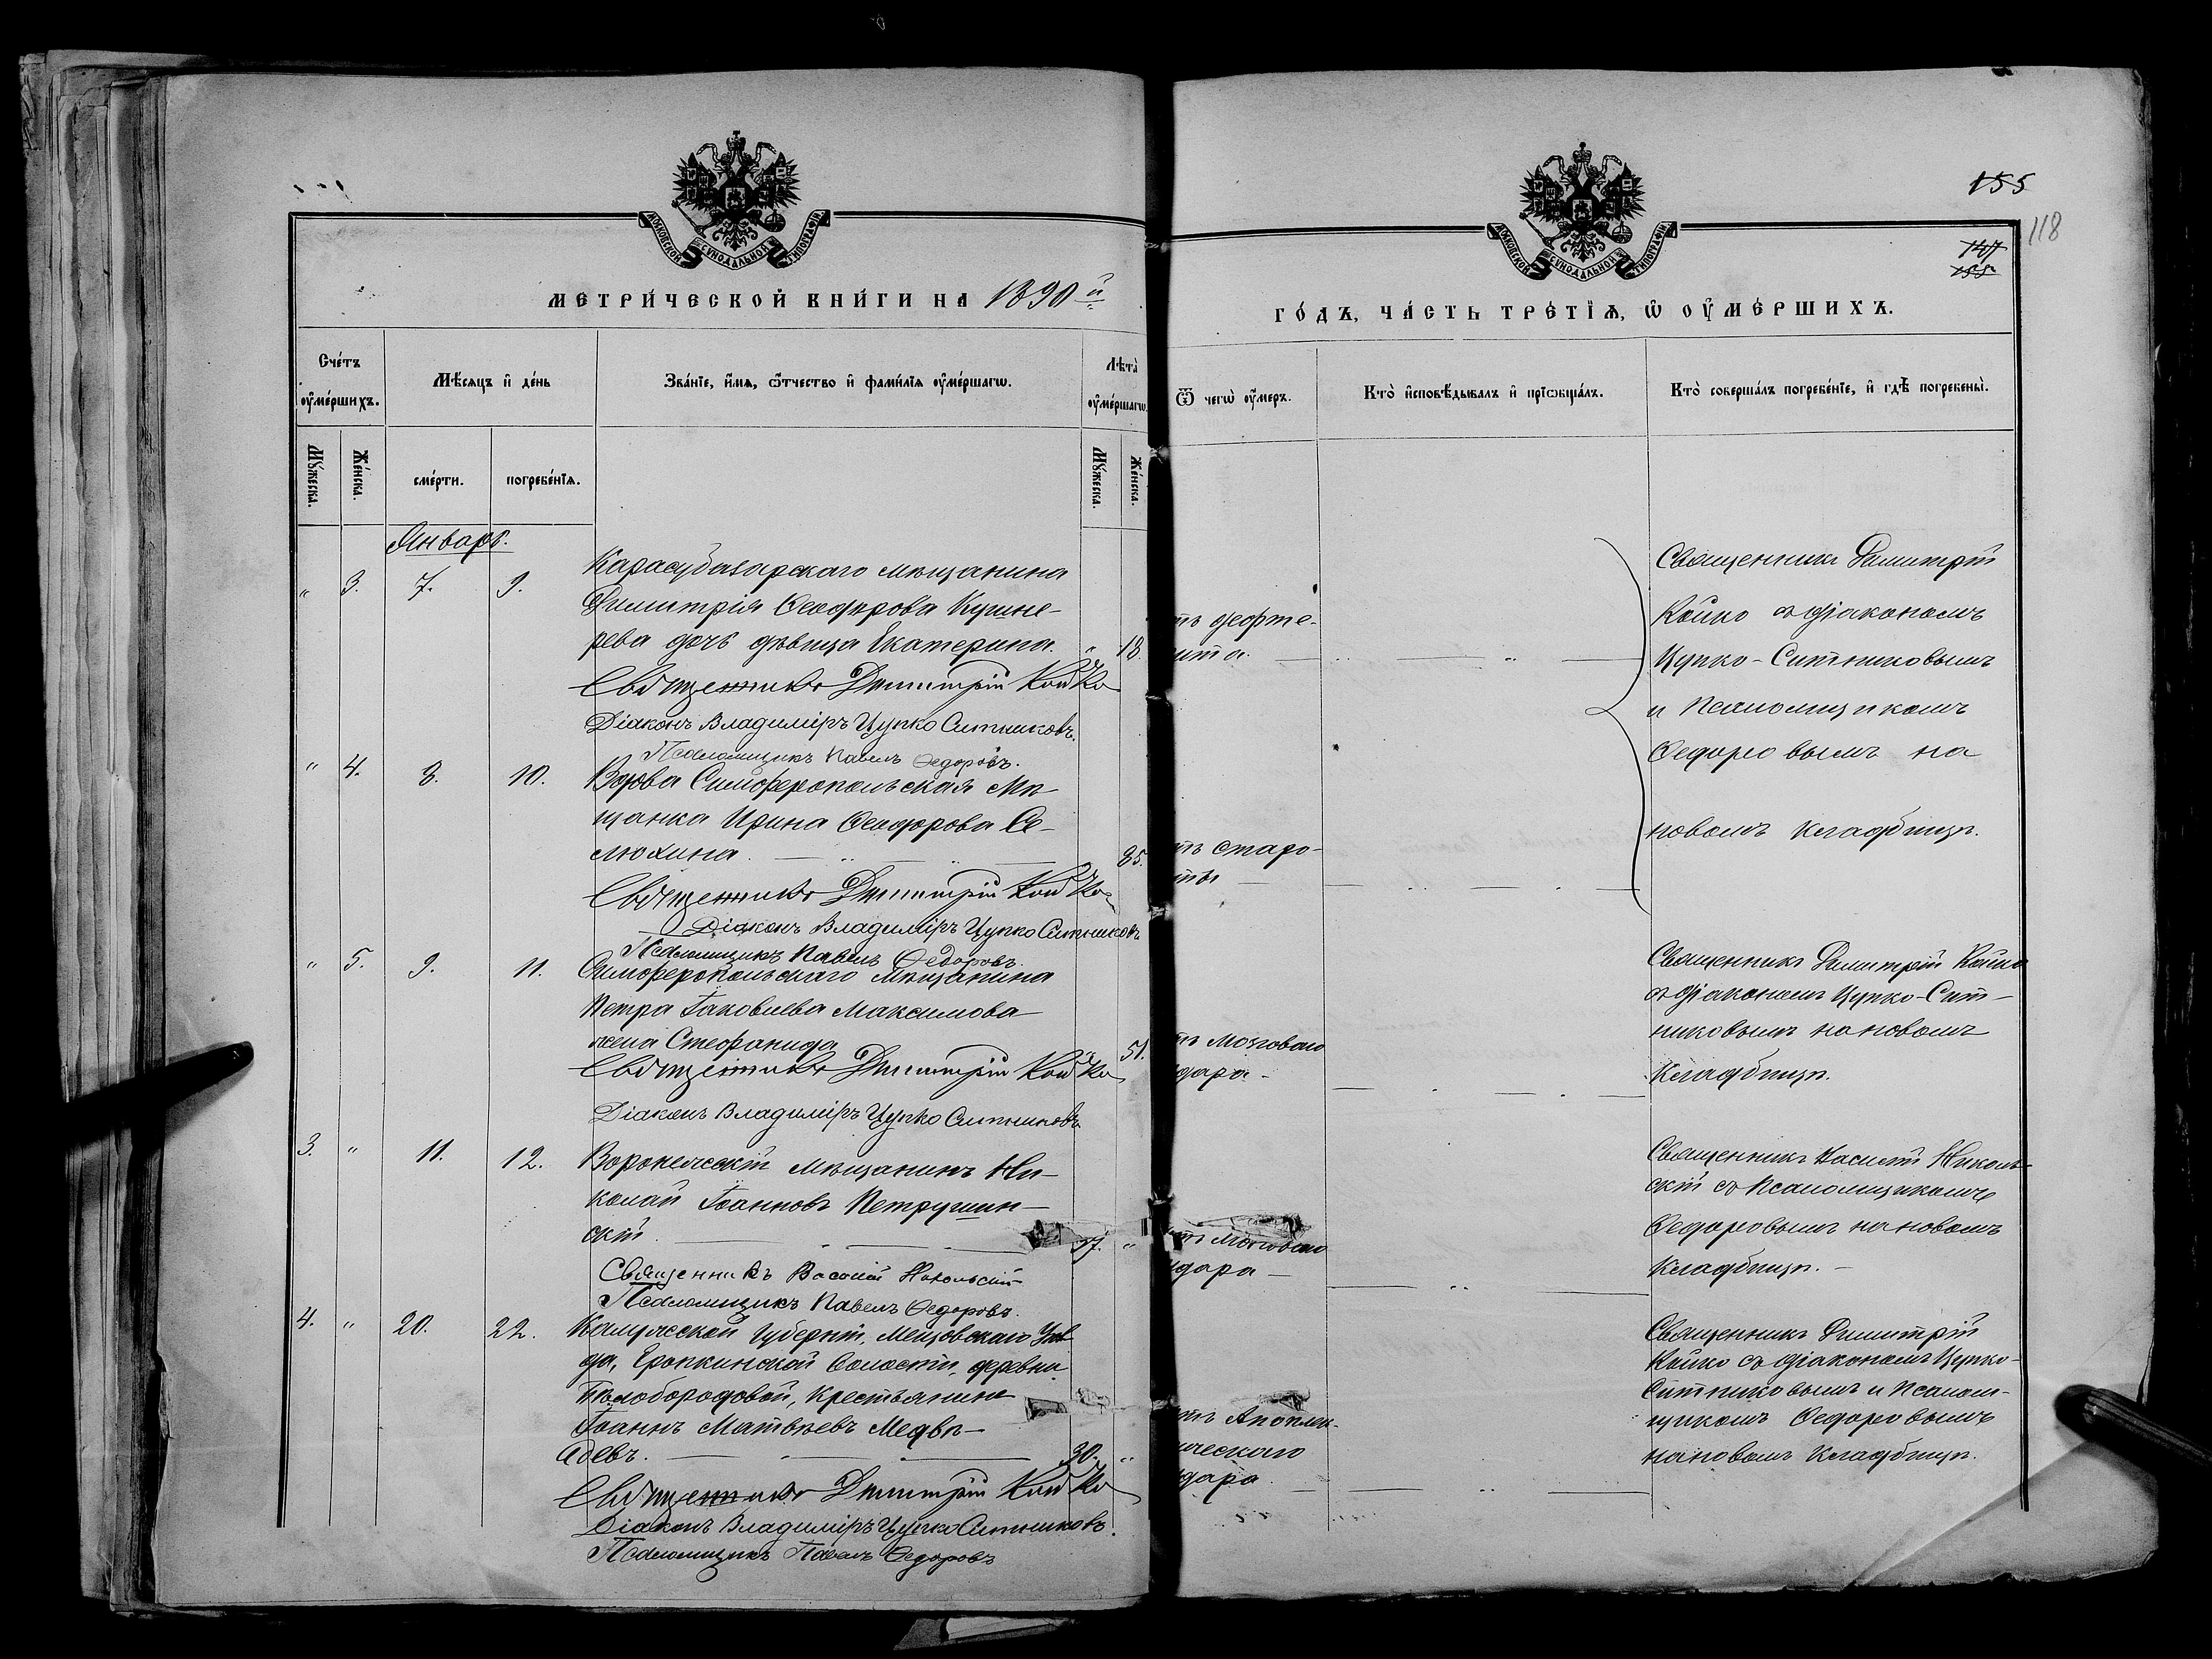 155
118
147
155
МОСКОВСКОЙ СѴНОДАЛЬНОЙ ТИПОГРАФІИ
МОСКОВСКОЙ СѴНОДАЛЬНОЙ ТИПОГРАФІИ
МЕТРИ́ЧЕСКОЙ КНИ́ГИ НА 1890й
ГО́ДЪ, ЧА́СТЬ ТРЕ́ТІѦ, Ѡ ОУ҆МЕ́РШИХЪ.
Сче́тъ оу҆ме́ршихъ.
Мѣ́сяцъ и҆ де́нь
Зва́нїе, и҆́мя, ѻ҆́тчество и҆ фами́лїя оу҆ме́ршагѡ.
Лѣта̀ оу҆ме́ршагѡ.
Ѿ чегѡ̀ оу҆́меръ.
Кто̀ и҆сповѣ́дывалъ и҆ прїѡбща́лъ.
Кто̀ соверша́лъ погребе́нїе, и҆ гдѣ̀ погребены̀.
Мꙋ́жеска.
Же́нска.
сме́рти.
погребе́нїя.
Мꙋ́жеска.
Же́нска.
Январь.
" 3. 7. 9.
Карасубазарскаго мѣщанина
Димитрія Ѳеодорова Кушне-
рева дочь дѣвица Екатерина. " 18.
Священникъ Димитрій Койко
Діаконъ Владиміръ Цупко Ситниковъ.
Псаломщикъ Павелъ Ѳедоровъ.
тъ дифте-
рита.
Священникъ Димитрій
Койко съ діакономъ
Цупко-Ситниковымъ
и Псаломщикомъ
Ѳедоровымъ на
новомъ кладбищѣ.
" 4. 8. 10.
Вдова Симферопольская Мѣ-
щанка Ирина Ѳеодорова Се-
люхина. 85.
Священникъ Димитрій Койко
Діаконъ Владиміръ Цупко Ситниковъ
Псаломщикъ Павелъ Ѳедоровъ.
тъ старо-
сти
" 5. 9. 11.
Симферопольскаго мѣщанина
Петра Іаковлева Максимова
жена Стефанида 51.
Священникъ Димитрій Койко
Діаконъ Владиміръ Цупко Ситниковъ
тъ мозговаго
удара.
Священникъ Димитрій Койко
съ діакономъ Цупко-Сит-
никовымъ на новомъ
кладбищѣ.
3. " 11. 12.
Воронежскій мѣщанинъ Ни-
колай Іоанновъ Петрушин-
скій. 57. "
Священникъ Василій Никольскій
Псаломщикъ Павелъ Ѳедоровъ.
тъ мозговаго
удара
Священникъ Василій Николь-
скій съ Псаломщикомъ
Ѳедоровымъ на новомъ
кладбищѣ.
4. " 20. 22.
Калужской губерніи, Мещовскаго Уѣз-
да, Еропкинской волости, деревни
Бѣлобородовой, крестьянинъ
Іоаннъ Матвѣевъ Медвѣ-
девъ. 30. "
Священникъ Димитрій Койко
Діаконъ Владиміръ Цупко Ситниковъ.
Псаломщикъ Павелъ Ѳедоровъ
тъ Апоплек-
ческаго
удара
Священникъ Димитрій
Койко съ діакономъ Цупко-
Ситниковымъ и Псалом-
щикомъ Ѳедоровымъ
на новомъ кладбищѣ.